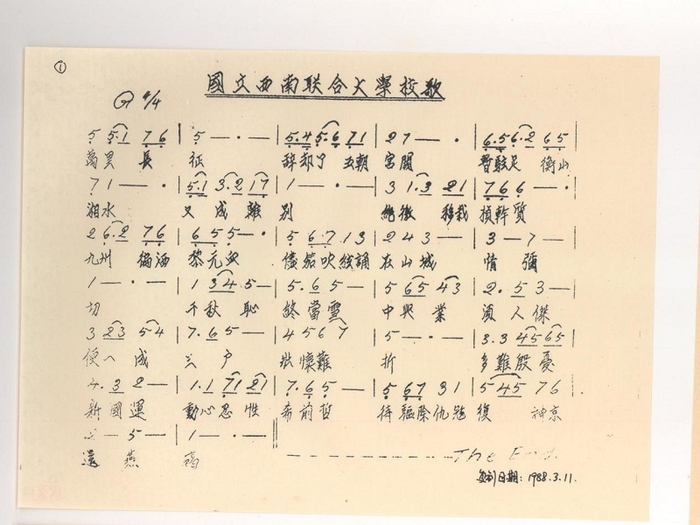 ①
國立西南联合大學校歌
G 4/4
5 5·1 7 6 | 5 — · — | 5·4 5·6 7 1 | 2 7 — · | 6·5 6·2 6 5 |
萬里 長 征 辞却了 五朝 宮闕 暫駐足 衡山
7 1 — — | 5·1 3·2 1 7 | 1 — · | 3 1·3 2 1 | 7 6 6 — · |
湘水 又 成 離 別 絶徼 移栽 楨幹質
2 6·2 7 6 | 6 5 5 — · | 5 6·7 1 3 | 2 4 3 — | 3 — 7 — |
九州 徧洒 黎元血 儘笳吹絃誦 在山城 情 彌
1 — · · | 1 3 4 5 — | 5·6 5 — | 5 6 5 4 3 | 2·5 3 — |
切 千秋 恥 終當雪 中興 業 須人傑
3 2 3 5 4 | 7·6 5 — | 4 5 6 7 | 5 — · — | 3·3 4 5 6 5 |
便一 成 三 户 壯懷難 折 多難殷憂
4·3 2 — | 1·1 7 1 2 1 | 7·6 5 — | 5 6 7 3 1 | 5 4 5 7 6 |
新國運 動心忍 性 希前哲 待驅除仇寇 復 神京
5 — | 1 — · — ‖
還 燕 碣 The End.
复制日期: 1988.3.11.